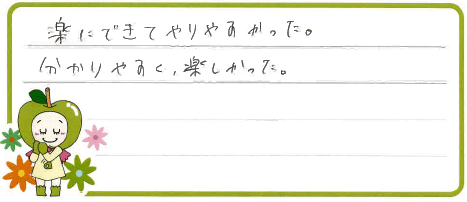 楽にできてやりやすかった。
分かりやすく、楽しかった。